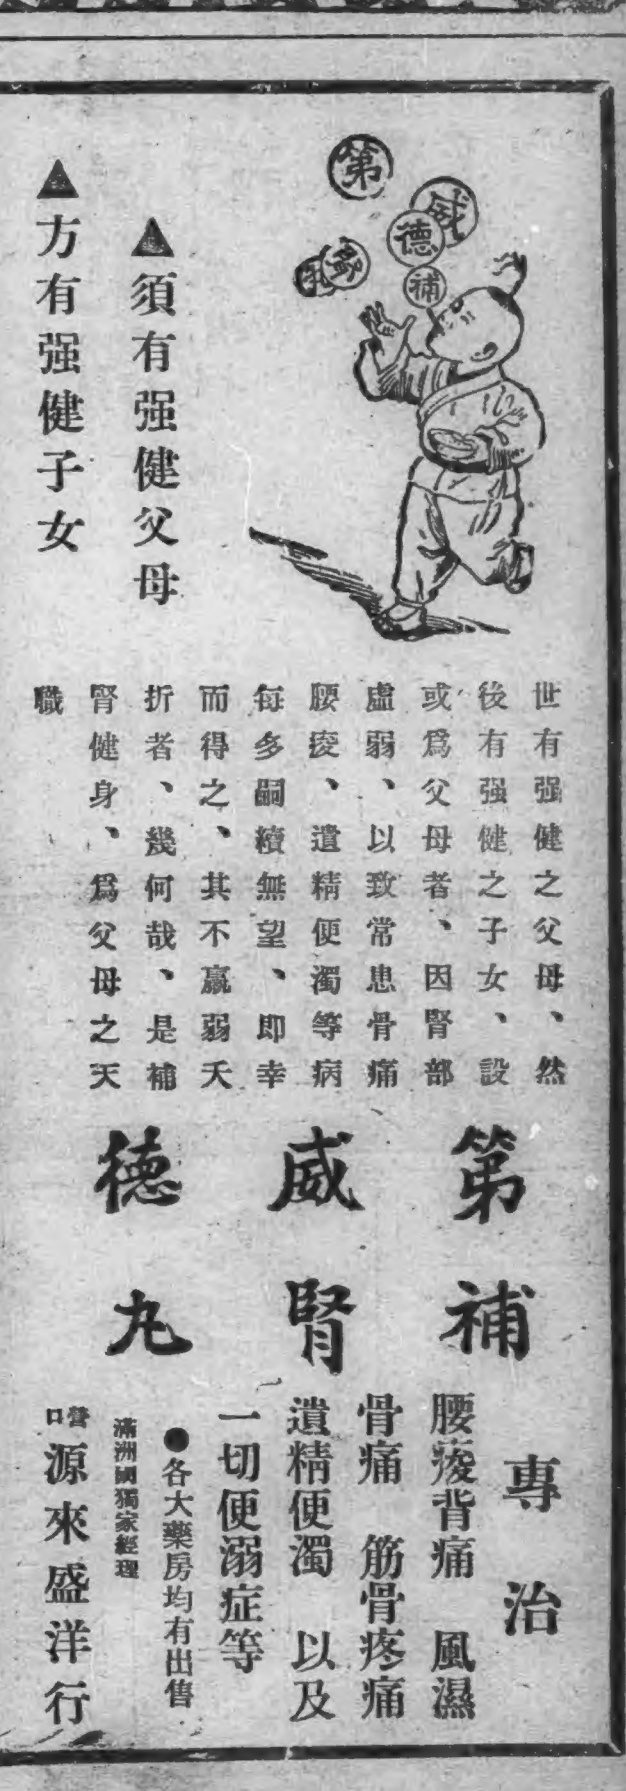 第
威
德
補
▲須有强健父母
▲方有强健子女
世有强健之父母、然
後有强健之子女、設
或爲父母者、因腎部
虛弱、以致常患骨痛
腰痠、遺精便濁等病
每多嗣續無望、即幸
而得之、其不羸弱夭
折者、幾何哉、是補
腎健身、爲父母之天
職
第威德
補腎丸
專治
腰痠背痛 風濕
骨痛 筋骨疼痛
遺精便濁 以及
一切便溺症等
●各大藥房均有出售
滿洲國獨家經理
營口 源來盛洋行